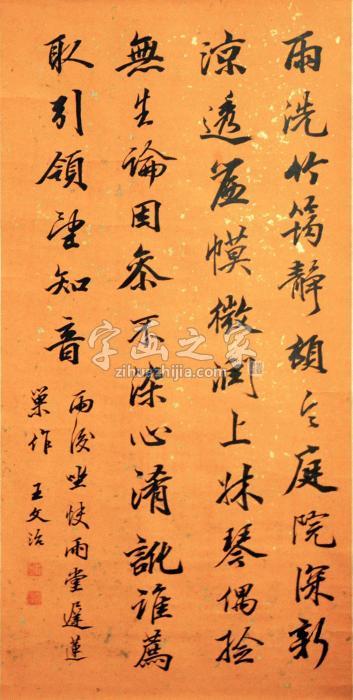 雨洗竹筠靜頓令庭院深新
涼透簾幙微潤上牀琴偶撿
無生論因参不染心淆訛誰薦
取引領望知音
雨後坐快雨堂遲蓮
巢作 王文治
字画之家
zihuazhijia.com